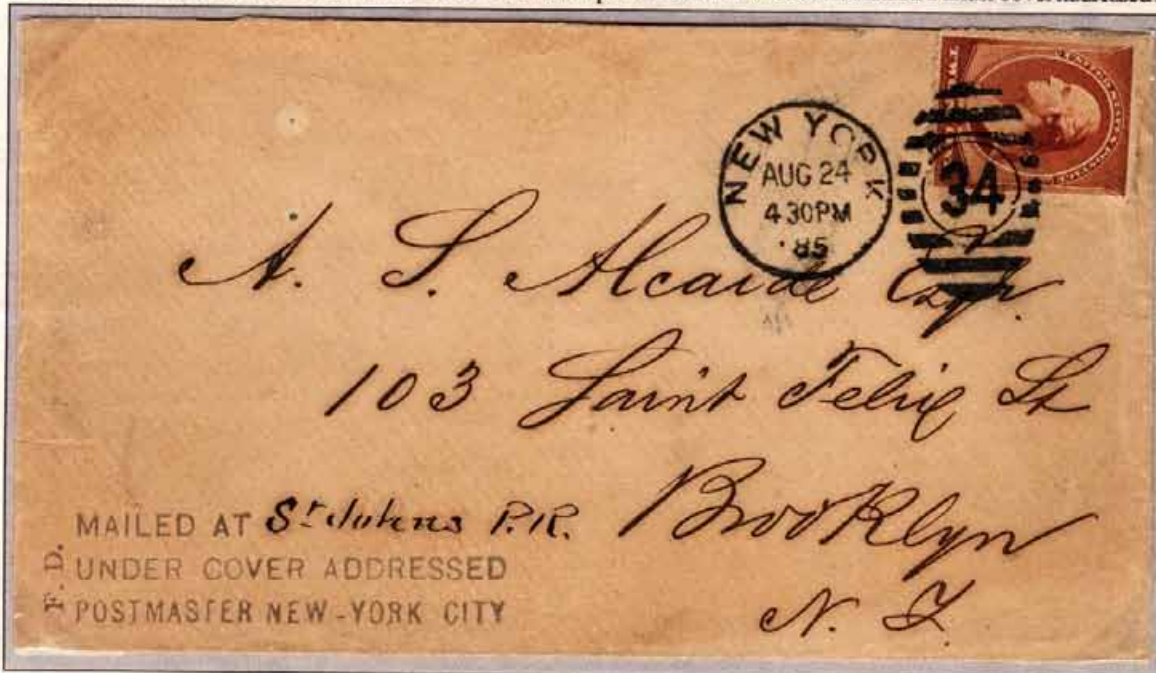 UNITED STATES POSTAGE
TWO
NEW YORK
AUG 24
4 30PM
85
34
A. S. Alcaide Esqr.
103 Saint Felix St
Brooklyn
N. Y.
MAILED AT St Johns P.R.
UNDER COVER ADDRESSED
POSTMASTER NEW-YORK CITY
F. D.